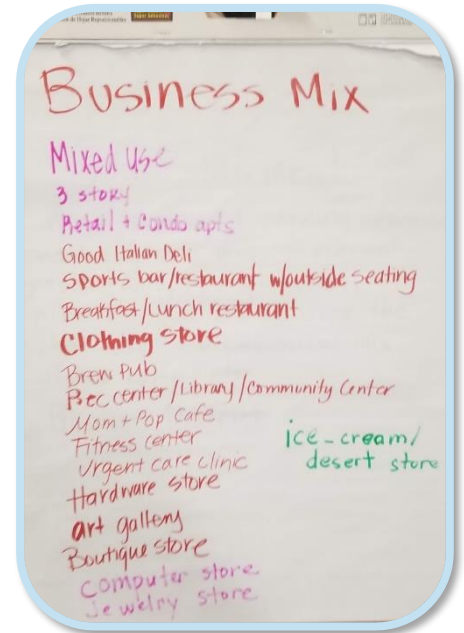 Business Mix
Mixed Use
3 story
Retail + Condo apts
Good Italian Deli
Sports bar/restaurant w/outside seating
Breakfast/Lunch restaurant
Clothing store
Brew Pub
Rec center/Library/Community Center
Mom + Pop Cafe
Fitness center
Urgent care clinic
Hardware store
art gallery
Boutique store
computer store
Jewelry store
ice-cream/
desert store